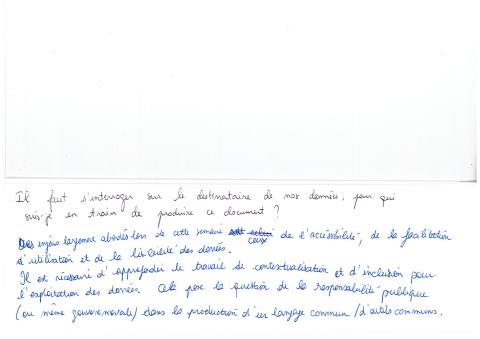 Il faut s'interroger sur le destinataire de nos données, pour qui
suis-je en train de produire ce document ?
Des enjeux largement abordés lors de cette semaine sont celui ceux de l'accessibilité, de la facilitation
d'utilisation et de la lisibilité des données.
Il est nécessaire d'approfondir le travail de contextualisation et d'inclusion pour
l'exploitation des données Cela pose la question de la responsabilité publique
(ou même gouvernementale) dans la production d'un langage commun / d'outils communs.